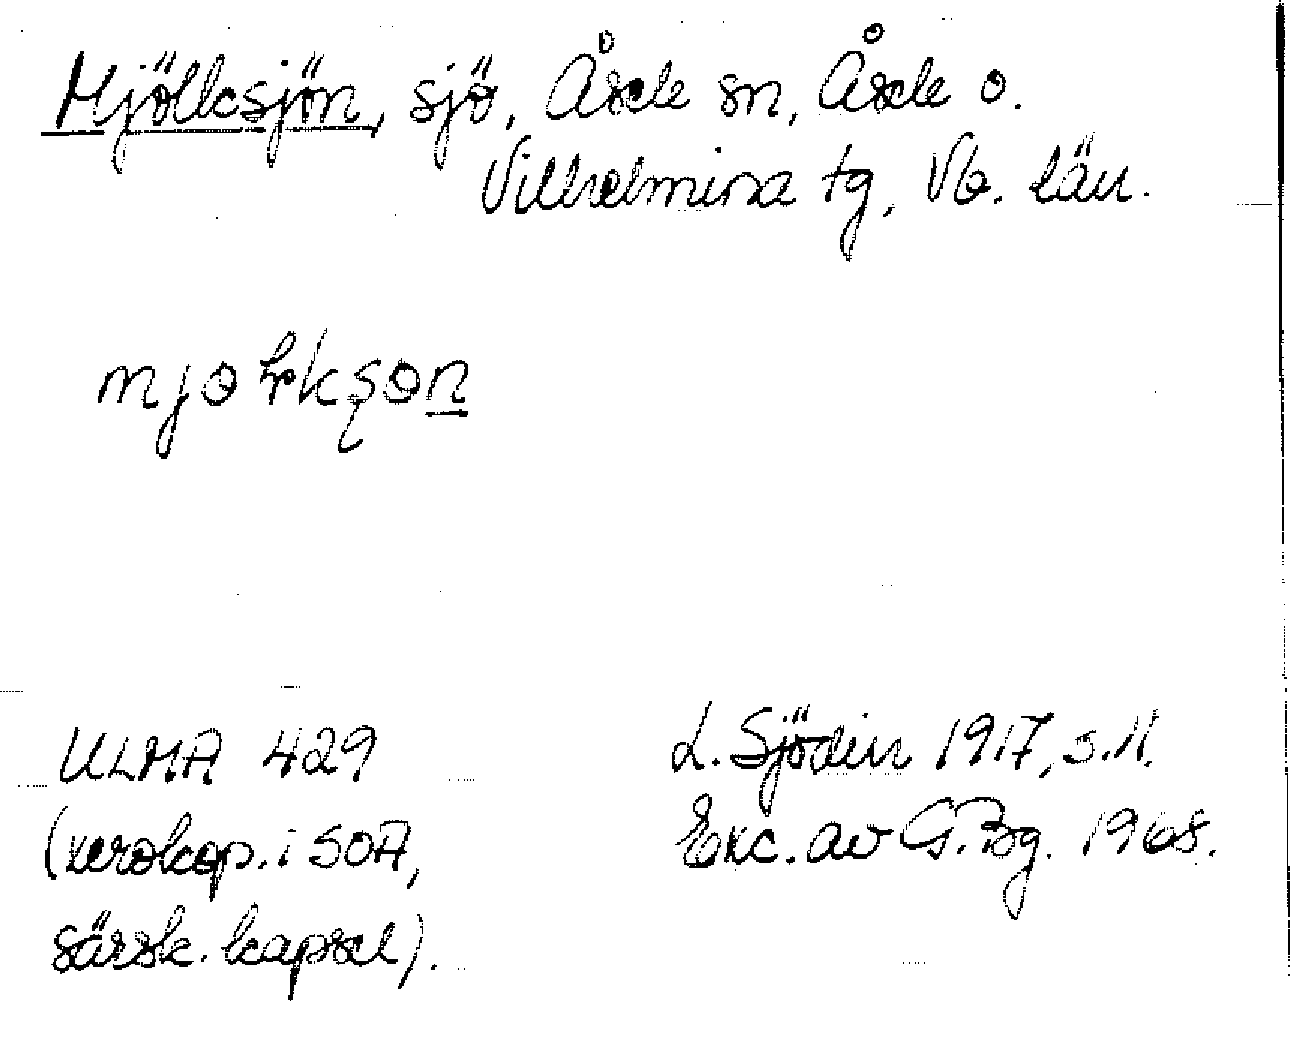 Mjölksjön, sjö, Åsele sn, Åsele o.
Vilhelmina tg, Vb. län.
ULMA 429
(xerokop. i SOA,
särsk. kapsel).
L. Sjödin 1917, s. 11.
Exc. av G. Bg. 1968.